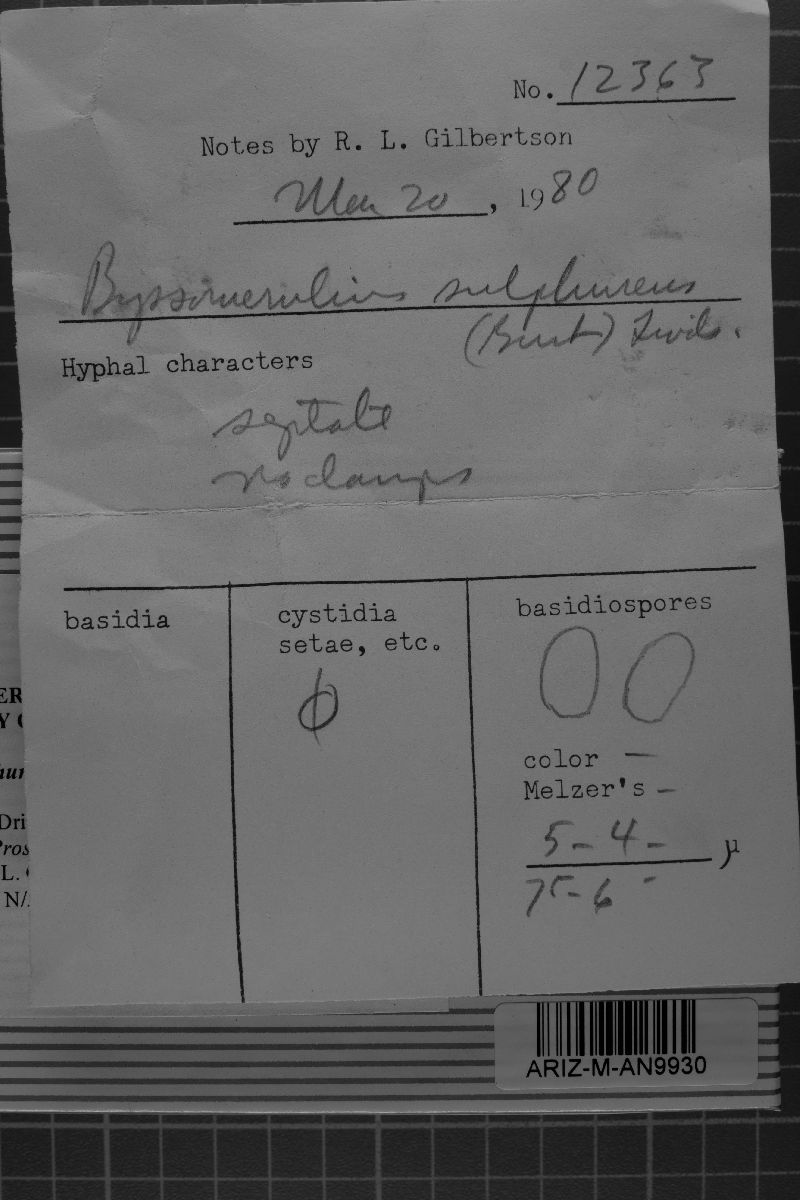 No. 12363
Notes by R. L. Gilbertson
Mar 20, 1980
Byssomerulius sulphureus
(Burt)
Hyphal characters
septate
no clamps
basidia
cystidia
setae, etc.
ϕ
basidiospores
color —
Melzer's —
5- 4- µ
75- 6-
ER
Y
Dri
Pros
L.
N/
ARIZ-M-AN9930